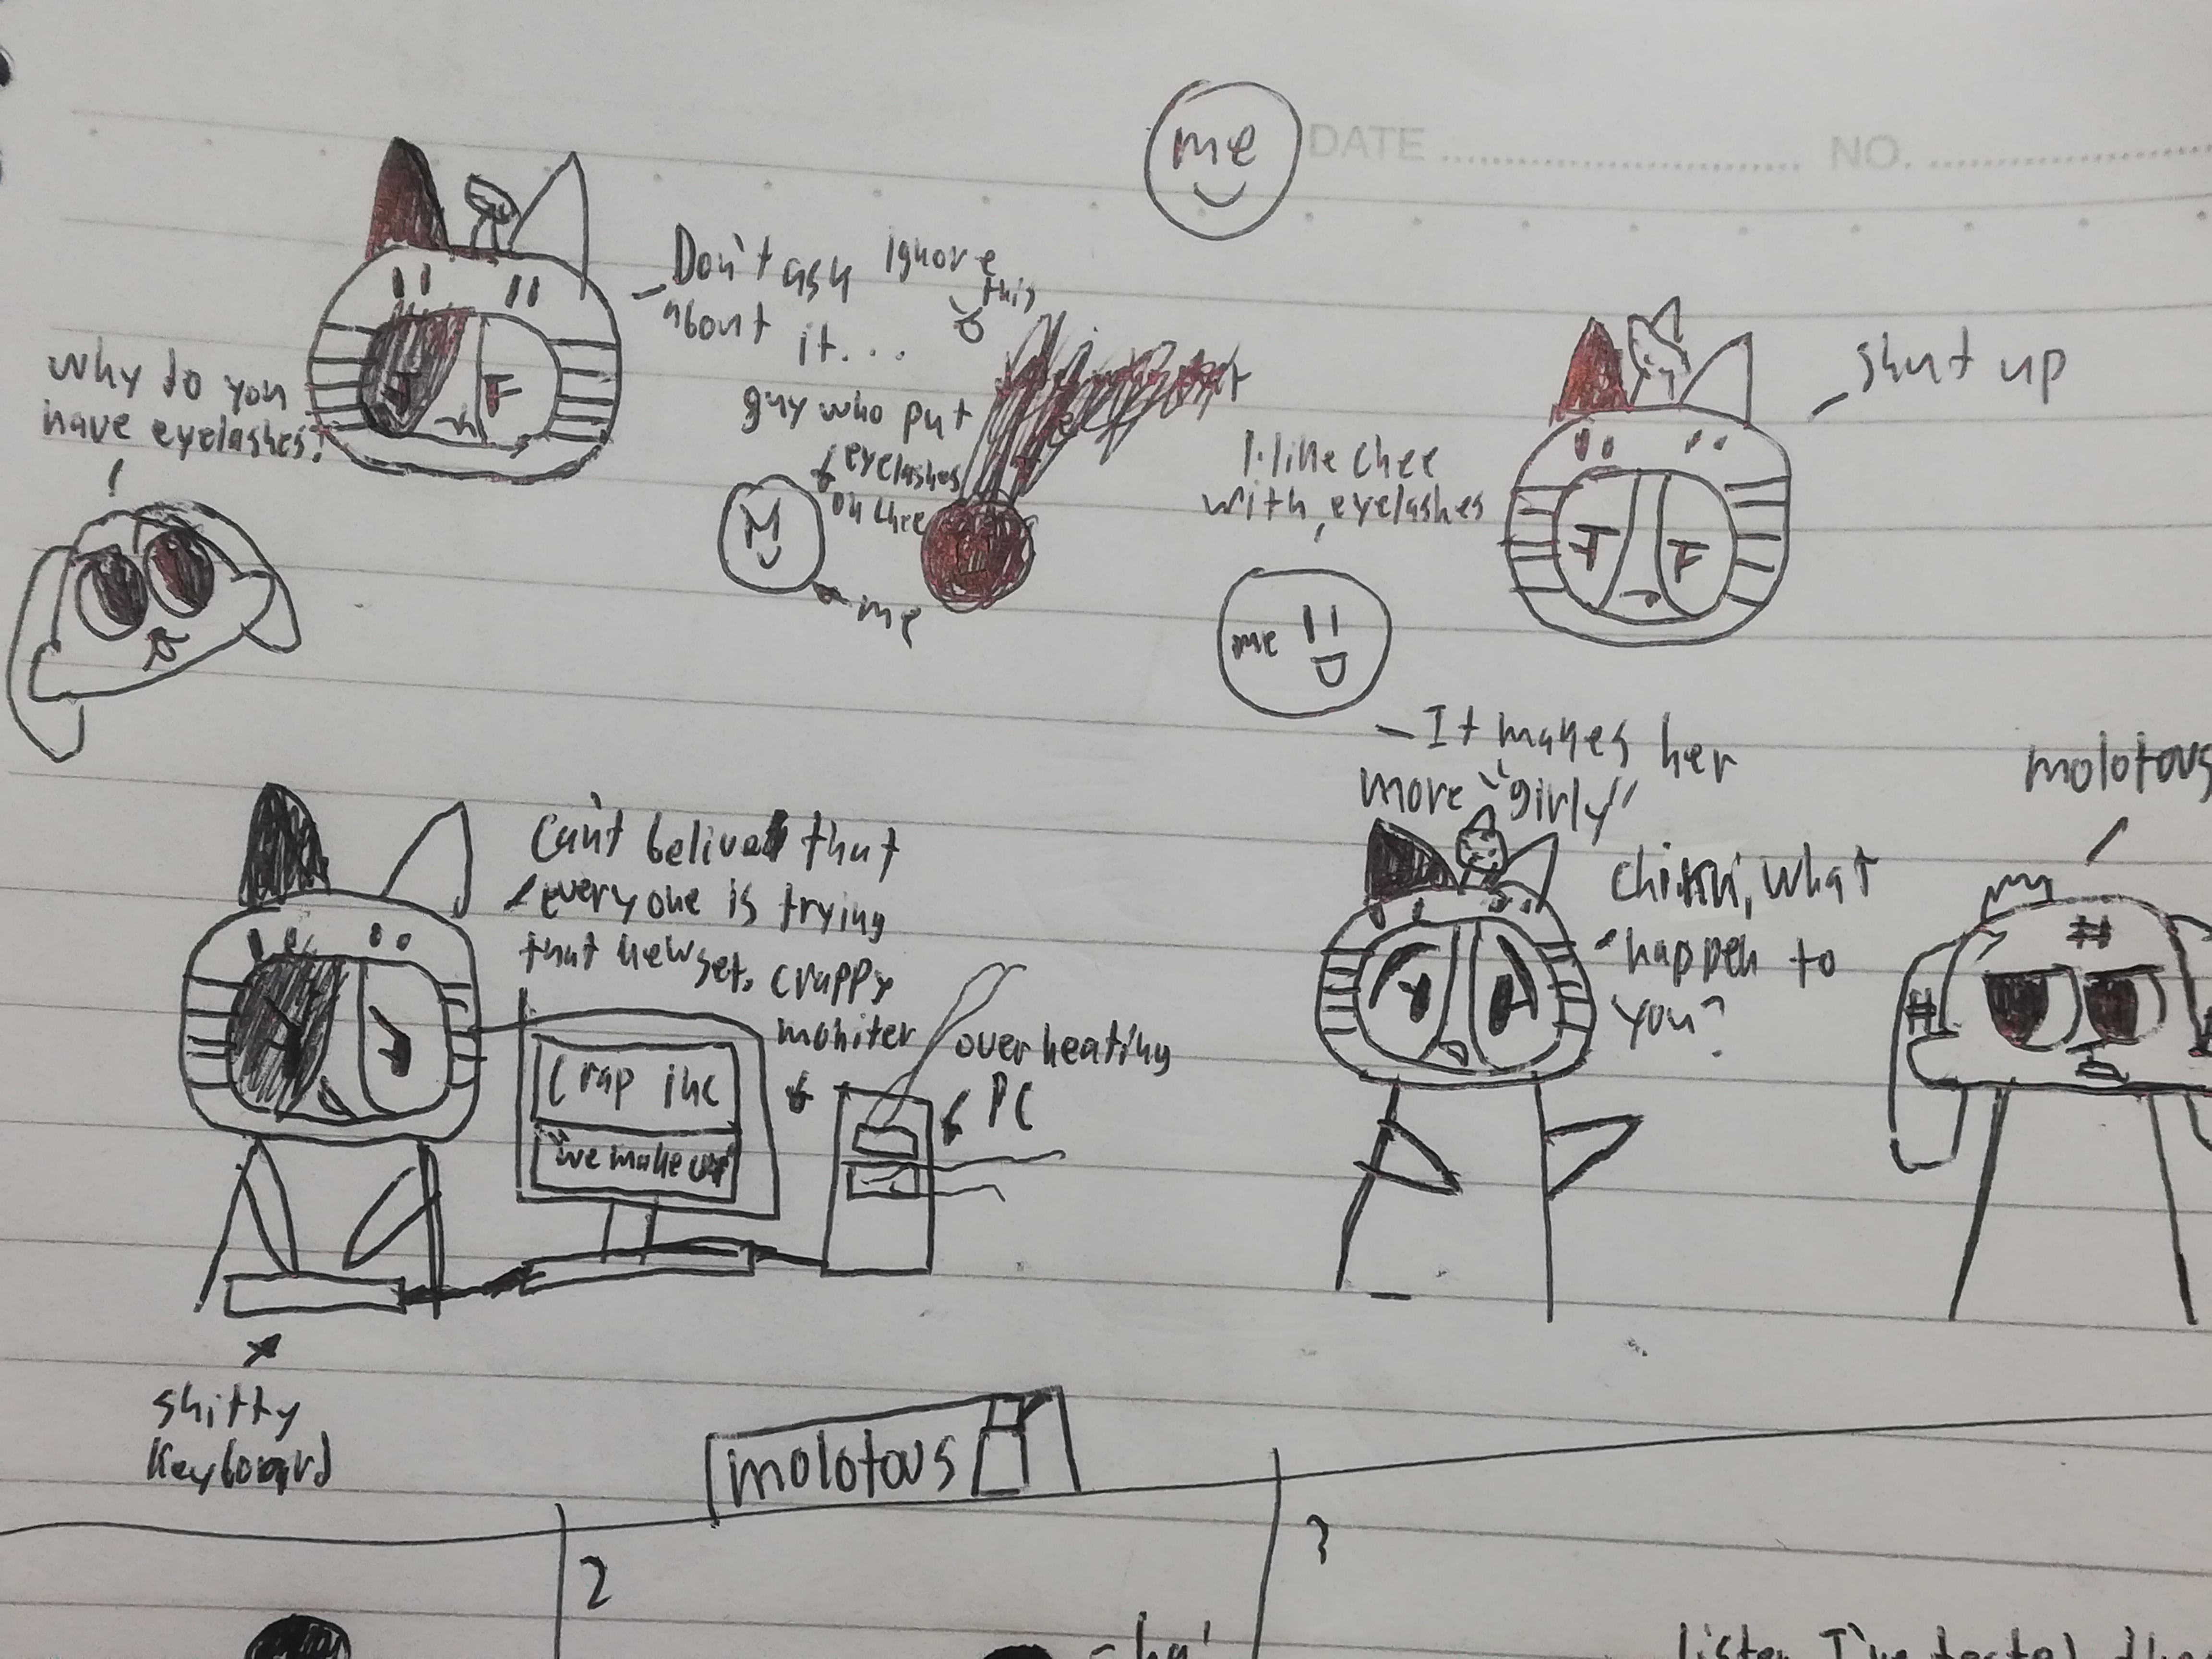 me
DATE
NO.
Don't ask
about it...
Ignore
this
why do you
have eyelashes?
guy who put
eyelashes
on chee
me
I like chee
with eyelashes
shut up
me
- It makes her
more "girly"
molotovs
Can't belived that
everyone is trying
that new set.
crappy
moniter
over heating
PC
Crap inc
"we make crap"
what
happen to
you?
shitty
keyboard
molotovs
2
3
ha!
listen I've tested